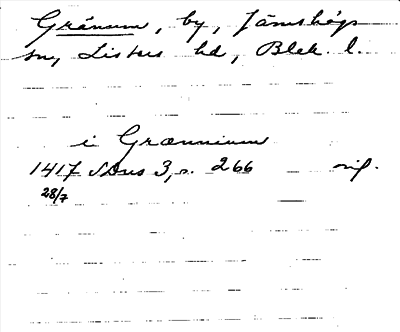 Gränum, by, Jämshögs
sn, Listers hd, Blek. l.
i Grænnium
1417 SDns 3, s. 266 orig.
28/7